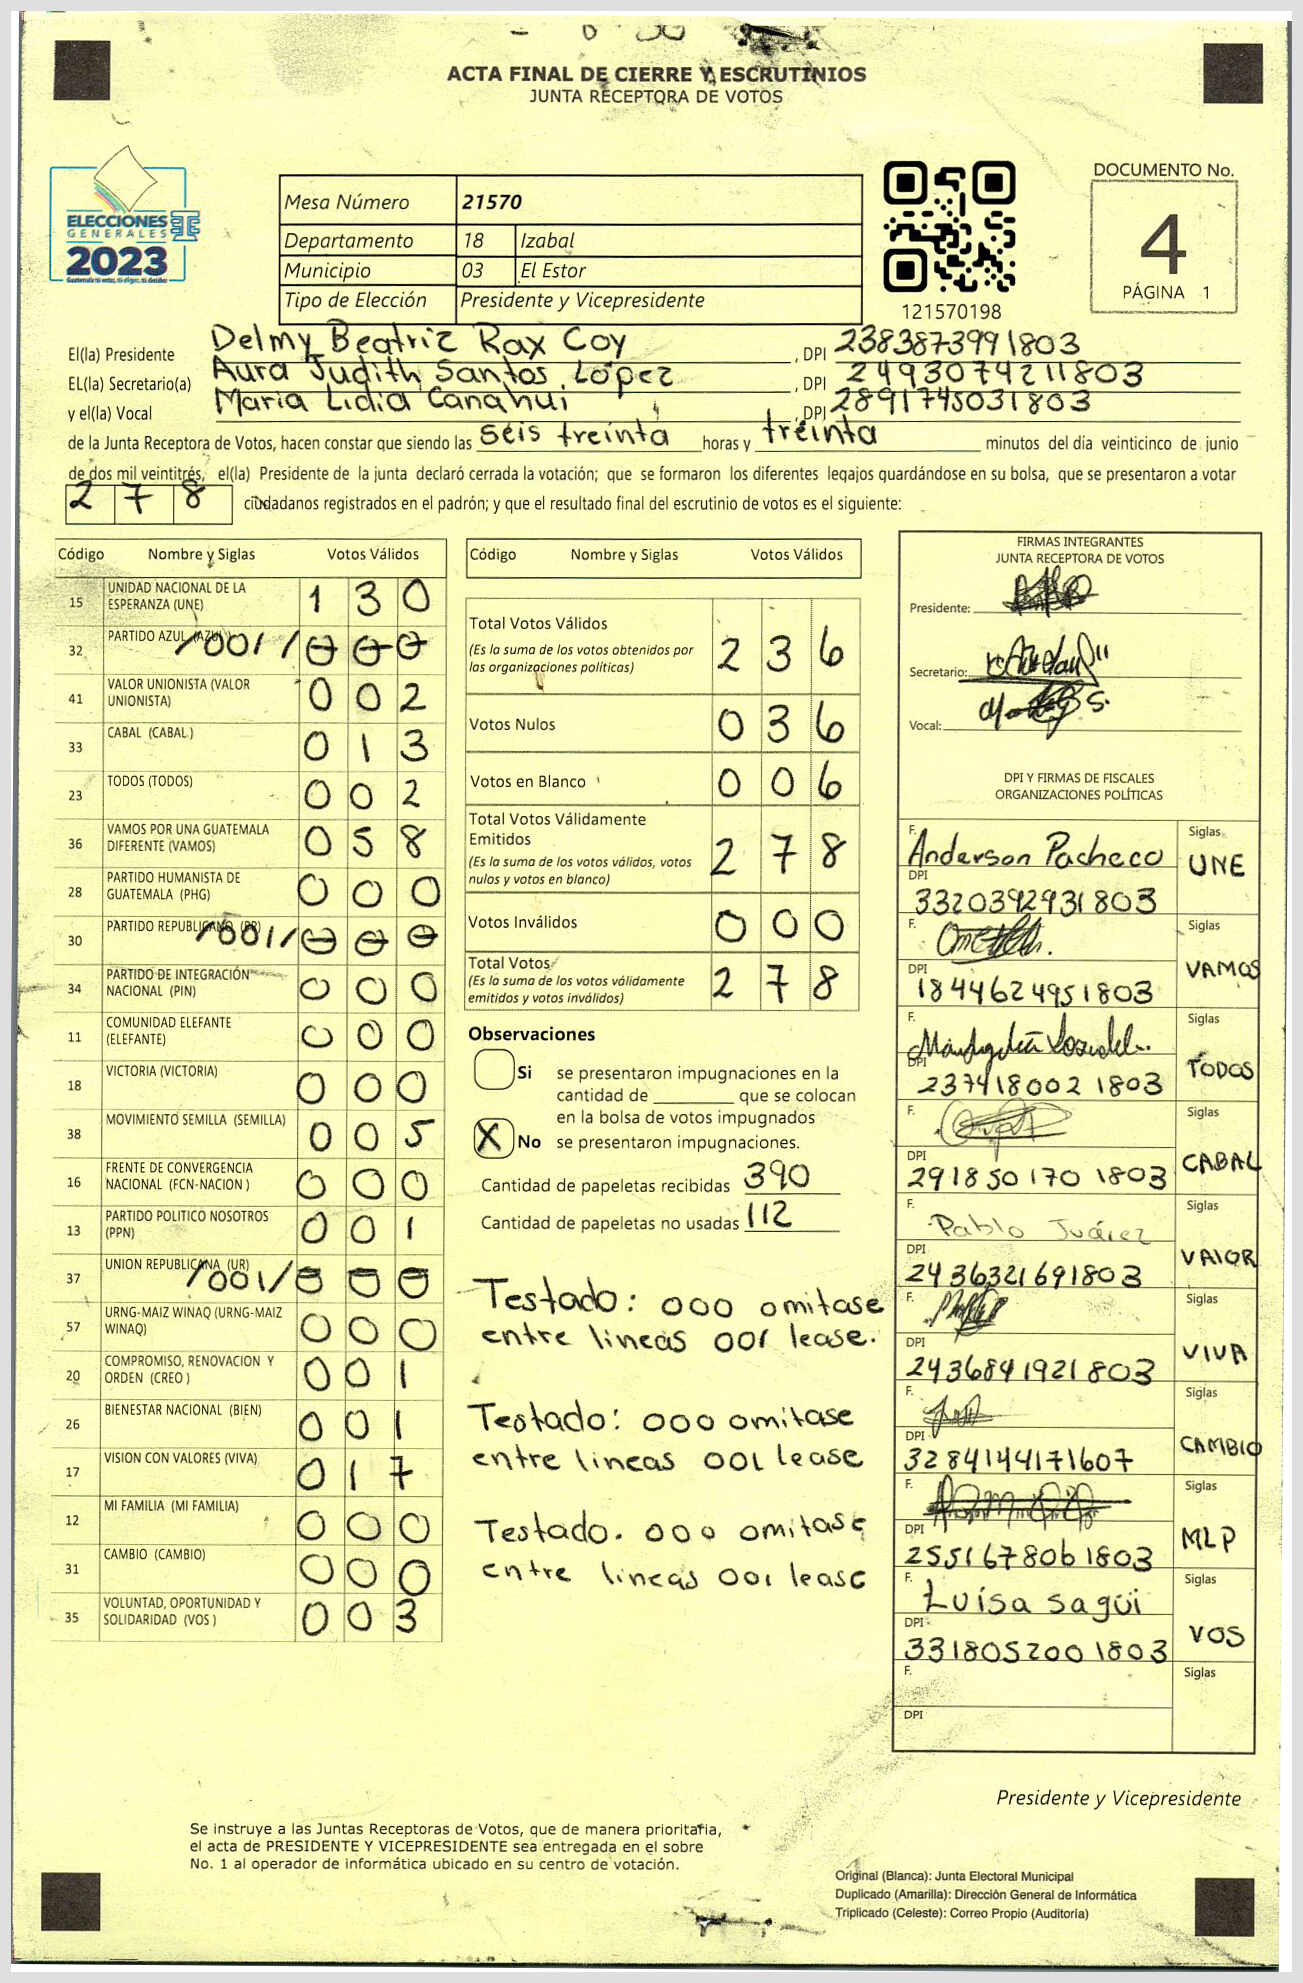 ACTA FINAL DE CIERRE Y ESCRUTINIOS
JUNTA RECEPTORA DE VOTOS
ELECCIONES
GENERALES
2023
Mesa Número 21570
Departamento 18 Izabal
Municipio 03 El Estor
Tipo de Elección Presidente y Vicepresidente
121570198
DOCUMENTO No.
4
PÁGINA 1
El(la) Presidente Delmy Beatriz Rax Coy, DPI 2383873991803
EL(la) Secretario(a) Aura Judith Santos López, DPI 2493074211803
y el(la) Vocal Maria Lidia Canahui, DPI 2891745031803
de la Junta Receptora de Votos, hacen constar que siendo las seis treinta horas y treinta minutos del día veinticinco de junio
de dos mil veintitrés, el(la) Presidente de la junta declaró cerrada la votación; que se formaron los diferentes legajos guardándose en su bolsa, que se presentaron a votar
2 7 8 ciudadanos registrados en el padrón; y que el resultado final del escrutinio de votos es el siguiente:
Código Nombre y Siglas Votos Válidos
15 UNIDAD NACIONAL DE LA ESPERANZA (UNE) 1 3 0
32 PARTIDO AZUL (AZUL) /001/ 0 0 0
41 VALOR UNIONISTA (VALOR UNIONISTA) 0 0 2
33 CABAL (CABAL) 0 1 3
23 TODOS (TODOS) 0 0 2
36 VAMOS POR UNA GUATEMALA DIFERENTE (VAMOS) 0 5 8
28 PARTIDO HUMANISTA DE GUATEMALA (PHG) 0 0 0
30 PARTIDO REPUBLICANO (PR) /001/ 0 0 0
34 PARTIDO DE INTEGRACIÓN NACIONAL (PIN) 0 0 0
11 COMUNIDAD ELEFANTE (ELEFANTE) 0 0 0
18 VICTORIA (VICTORIA) 0 0 0
38 MOVIMIENTO SEMILLA (SEMILLA) 0 0 5
16 FRENTE DE CONVERGENCIA NACIONAL (FCN-NACION ) 0 0 0
13 PARTIDO POLITICO NOSOTROS (PPN) 0 0 1
37 UNION REPUBLICANA (UR) /001/ 0 0 0
57 URNG-MAIZ WINAQ (URNG-MAIZ WINAQ) 0 0 0
20 COMPROMISO, RENOVACION Y ORDEN (CREO ) 0 0 1
26 BIENESTAR NACIONAL (BIEN) 0 0 1
17 VISION CON VALORES (VIVA) 0 1 7
12 MI FAMILIA (MI FAMILIA) 0 0 0
31 CAMBIO (CAMBIO) 0 0 0
35 VOLUNTAD, OPORTUNIDAD Y SOLIDARIDAD (VOS ) 0 0 3
Código Nombre y Siglas Votos Válidos
Total Votos Válidos 2 3 6
(Es la suma de los votos obtenidos por
las organizaciones políticas)
Votos Nulos 0 3 6
Votos en Blanco 0 0 6
Total Votos Válidamente
Emitidos 2 7 8
(Es la suma de los votos válidos, votos
nulos y votos en blanco)
Votos Inválidos 0 0 0
Total Votos 2 7 8
(Es la suma de los votos válidamente
emitidos y votos inválidos)
Observaciones
Si se presentaron impugnaciones en la
cantidad de ________ que se colocan
en la bolsa de votos impugnados
X No se presentaron impugnaciones.
Cantidad de papeletas recibidas 390
Cantidad de papeletas no usadas 112
Testado: 000 omitase
entre lineas 001 lease.
Testado: 000 omitase
entre lineas 001 lease
Testado. 000 omitase
entre lineas 001 lease
FIRMAS INTEGRANTES
JUNTA RECEPTORA DE VOTOS
Presidente:
Secretario:
Vocal:
DPI Y FIRMAS DE FISCALES
ORGANIZACIONES POLÍTICAS
F. Anderson Pacheco Siglas UNE
DPI 3320392931803
F. Siglas VAMOS
DPI 1844624951803
F. Siglas TODOS
DPI 2374180021803
F. Siglas CABAL
DPI 2918501701803
F. Pablo Juárez Siglas VALOR
DPI 2436321691803
F. Siglas VIVA
DPI 2436841921803
F. Siglas CAMBIO
DPI 3284144171607
F. Siglas MLP
DPI 2551678061803
F. Luisa Sagüi Siglas VOS
DPI 3318052001803
F. Siglas
DPI
Presidente y Vicepresidente
Se instruye a las Juntas Receptoras de Votos, que de manera prioritaria,
el acta de PRESIDENTE Y VICEPRESIDENTE sea entregada en el sobre
No. 1 al operador de informática ubicado en su centro de votación.
Original (Blanca): Junta Electoral Municipal
Duplicado (Amarilla): Dirección General de Informática
Triplicado (Celeste): Correo Propio (Auditoría)